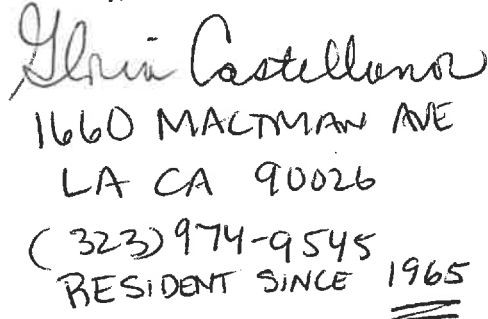 Gloria Castellanos
1660 MALTMAN AVE
LA CA 90026
(323) 974-9545
RESiDENT SiNCE 1965